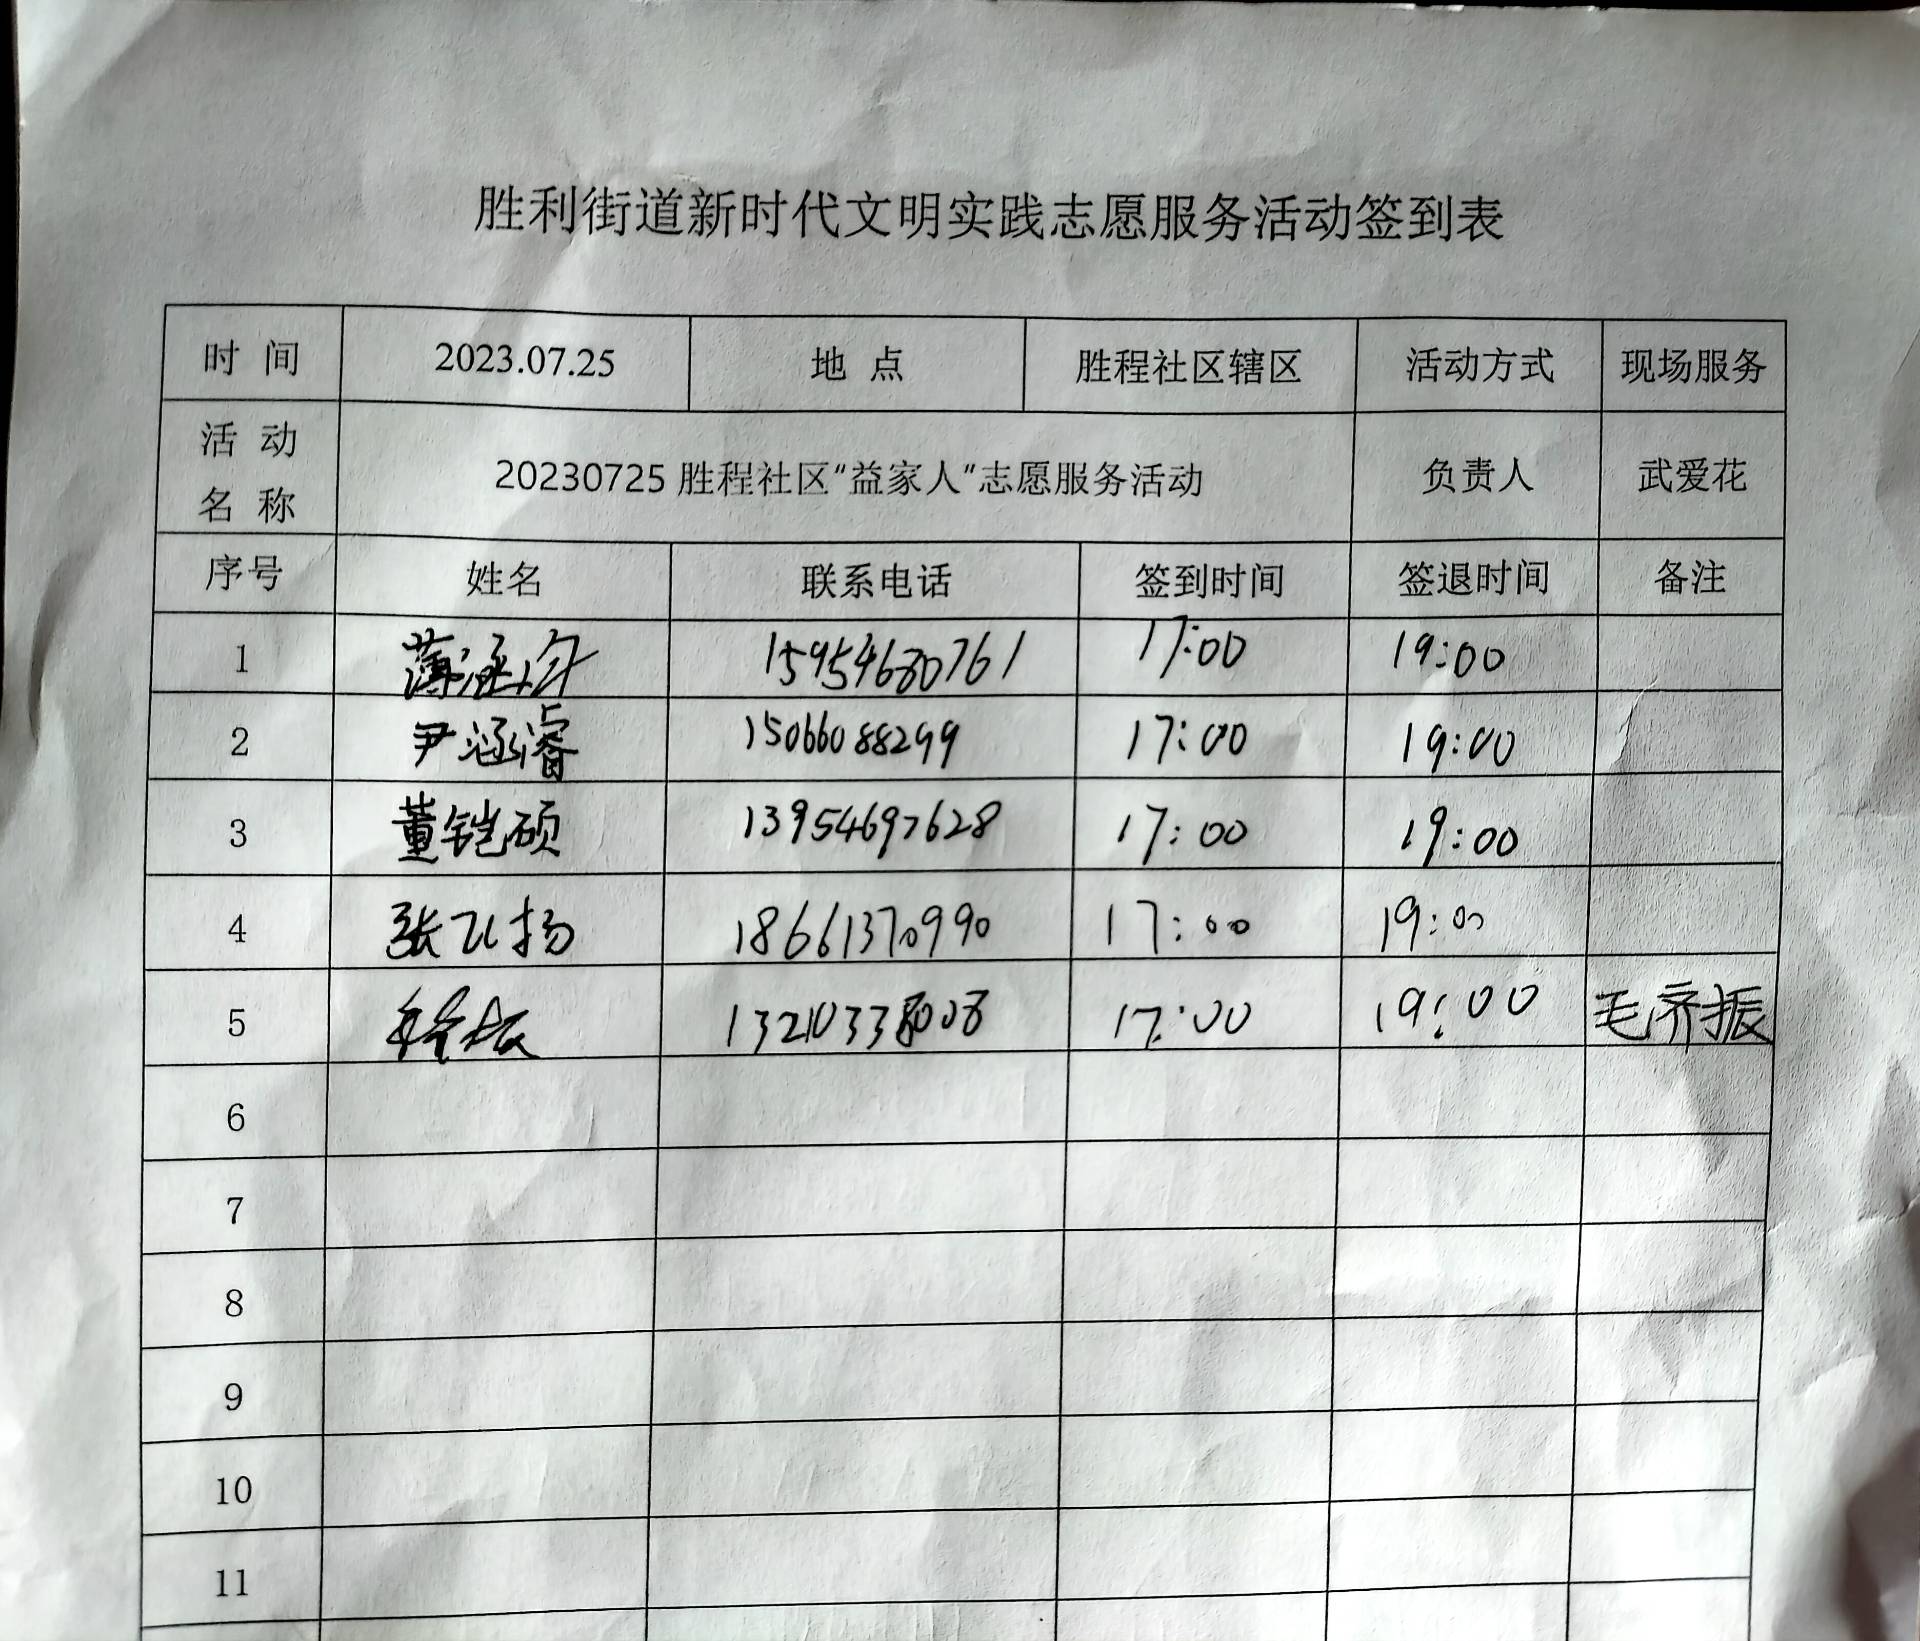 胜利街道新时代文明实践志愿服务活动签到表
时 间 2023.07.25 地 点 胜程社区辖区 活动方式 现场服务
活 动
名 称 20230725 胜程社区“益家人”志愿服务活动 负责人 武爱花
序号 姓名 联系电话 签到时间 签退时间 备注
1 薄涵 15954680761 17:00 19:00
2 尹涵睿 15066088299 17:00 19:00
3 董铠硕 13954697628 17:00 19:00
4 张飞扬 18661370990 17:00 19:00
5 13210338008 17:00 19:00 毛齐振
6
7
8
9
10
11